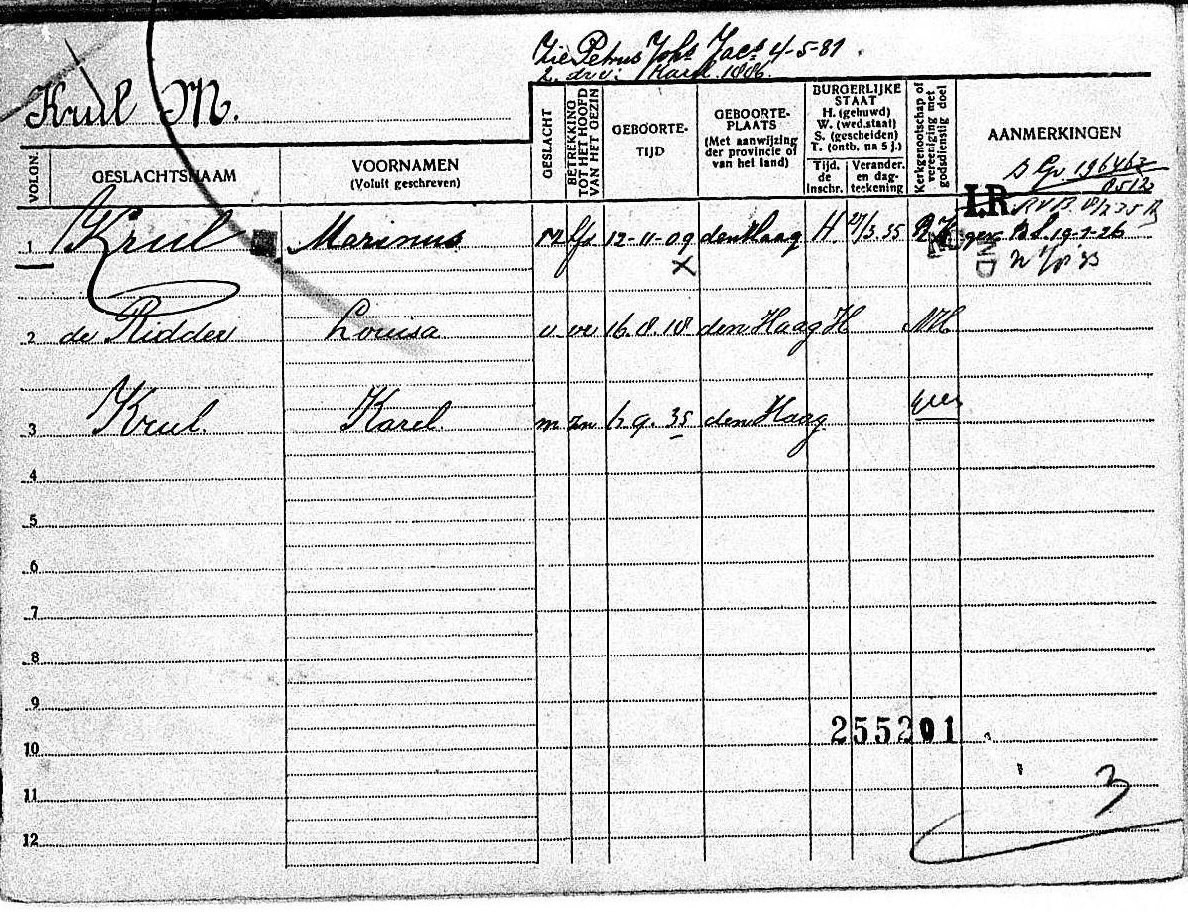 Zie Petrus Johs Jacs 4-5-81.
Krul M.
VOLGN.
GESLACHTSNAAM
VOORNAMEN
(Voluit geschreven)
GESLACHT
BETREKKING
TOT HET HOOFD
VAN HET GEZIN
GEBOORTE-
TIJD
GEBOORTE-
PLAATS
(Met aanwijzing
der provincie of
van het land)
BURGERLIJKE
STAAT
H. (gehuwd)
W. (wed.staat)
S. (gescheiden)
T. (ontb. na 5 j.)
Tijd.
de
inschr.
Verander.
en dag-
teekening
Kerkgenootschap of
vereeniging met
godsdienstig doel
AANMERKINGEN
I.R.
1 Krul Marinus m 12-11-09 den Haag H 27/3.35
X
2 de Ridder Louisa v 16.8.18 den Haag H NH
3 Krul Karel m zn 9.35 den Haag geen
4
5
6
7
8
9
255201
10
11
3
12